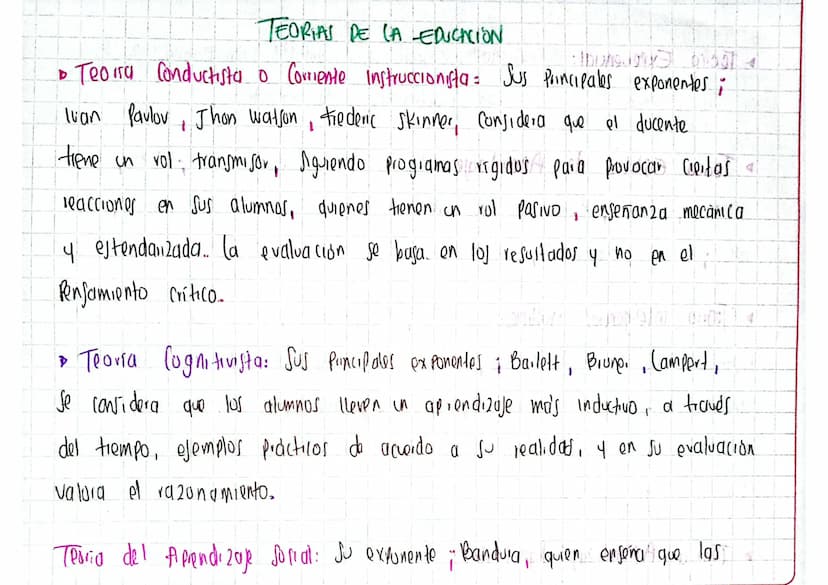 TEORIAS DE LA EDUCACIÓN
Teoria Conductista o Corriente Instruccionista: Sus Principales exponentes ;
Ivan Pavlov , Jhon Watson , frederic Skinner, Considera que el docente
tiene un rol transmisor, siguiendo programas rigidos para provocar ciertas
reacciones en sus alumnos, quienes tienen un rol pasivo , enseñanza mecànica
y estandarizada. la evaluación se basa en los resultados y no en el
Pensamiento crítico.
Teoría Cognitivista: Sus Principales exponentes ; Barlett, Bruner , Lampert,
se considera que los alumnos lleven un aprendizaje más inductivo, a través
del tiempo, ejemplos prácticos de acuerdo a su realidad, y en su evaluación
valora el razonamiento.
Teoria del Aprendizaje Social: Su exponente ; Bandura, quien enseña que las